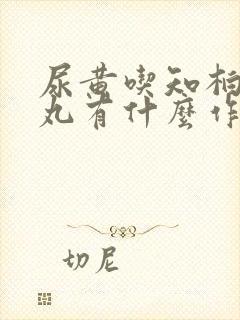 尿黄喫知柏
丸有什麼作
切尼